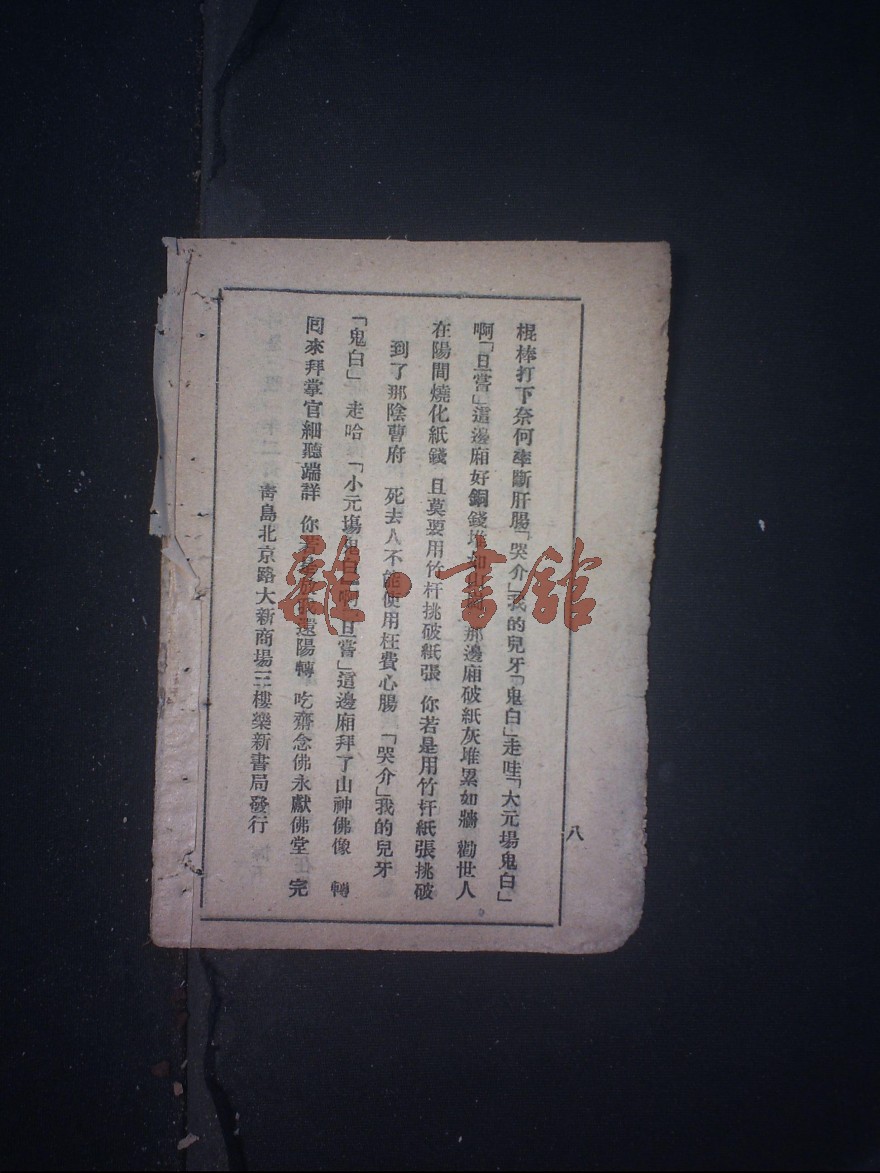 棍棒打下奈何牽斷肝腸「哭介」我的兒牙「鬼白」走哇「大元場鬼白」
啊「旦嘗」這邊廂好銅錢堆如山 那邊廂破紙灰堆累如牆 勸世人
在陽間燒化紙錢 且莫要用竹杆挑破紙張 你若是用竹杆紙張挑破
到了那陰曹府 死去人不能使用枉費心腸 「哭介」我的兒牙
「鬼白」 走哈 「小元塲鬼白」啊「旦嘗」這邊廂拜了山神佛像 轉
囘來拜掌官細聽端詳 你若是放我還陽轉 吃齋念佛永獻佛堂 完
靑島北京路大新商場三樓樂新書局發行
八
雜·書館